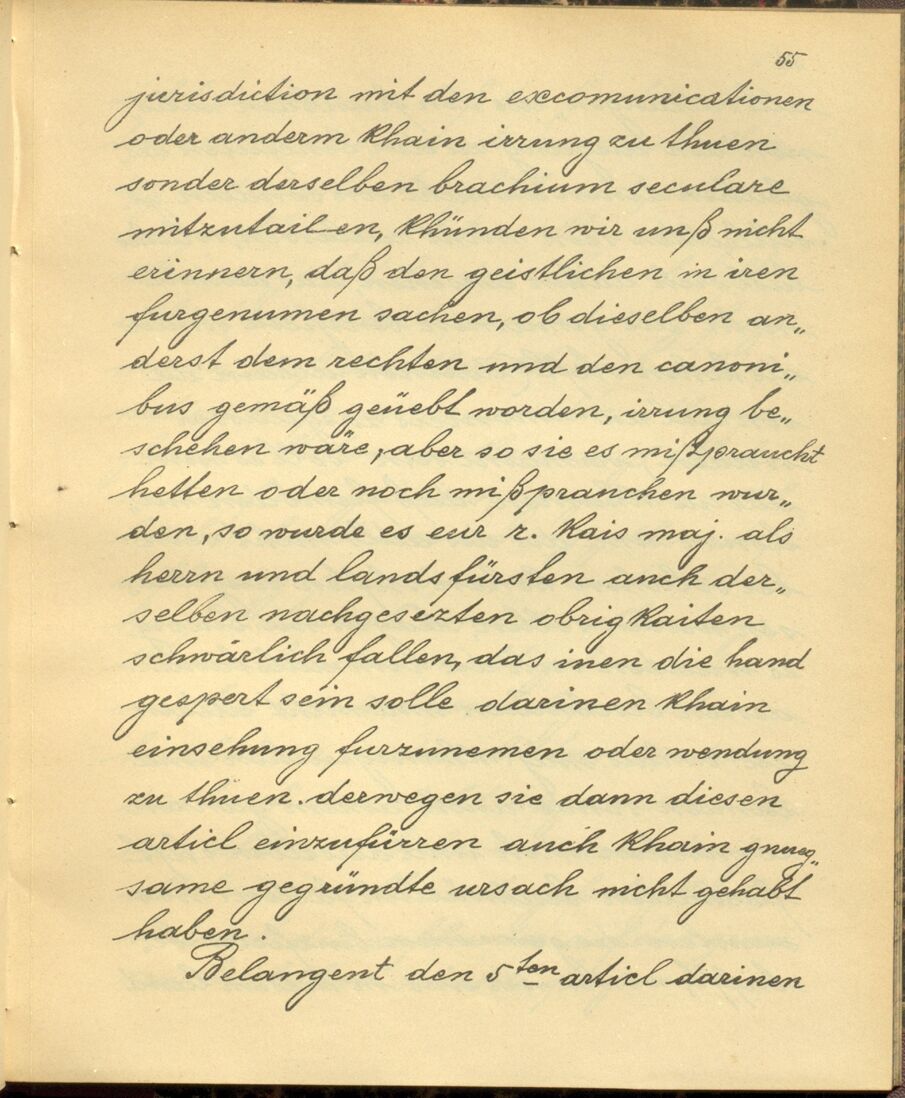 55
jurisdiction mit den excomunicationen
oder anderm khain irrung zu thuen
sonder derselben brachium seculare
mitzutailen, khünden wir unß nicht
erinnern, daß den geistlichen in iren
furgenumen sachen, ob dieselben an„
derst dem rechten und den canoni„
bus gemäß geüebt worden, irrung be„
schehen wäre, aber so sie es mißpraucht
hetten oder noch mißprauchen wur„
den, so wurde es eur r. kais maj. als
herrn und landsfürsten auch der„
selben nachgesezten obrigkaiten
schwärlich fallen, das inen die hand
gespert sein solle darinen khain
einsehung furzunemen oder wendung
zu thuen. derwegen sie dann diesen
articl einzufürren auch khain gnueg„
same gegründte ursach nicht gehabt
haben.
Belangent den 5ten articl darinen